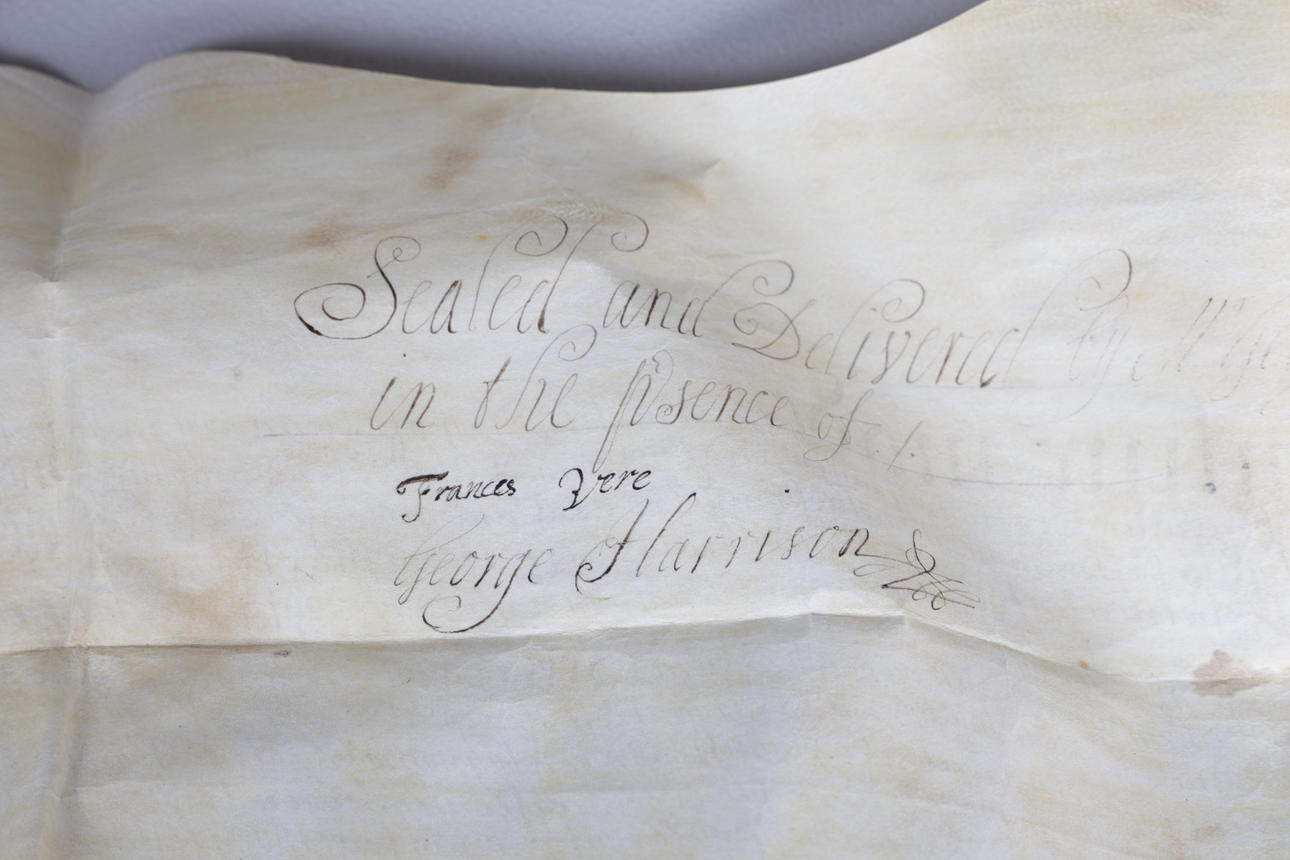 Sealed and Delivered by
in the p̱sence of
Frances Vere
George Harrison